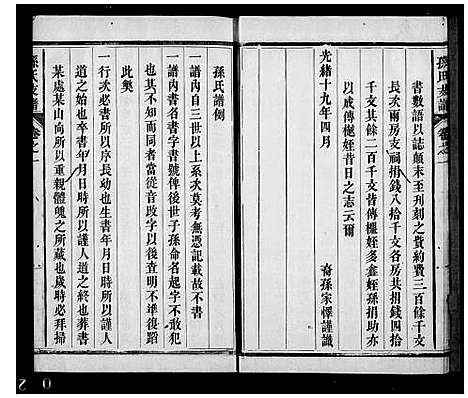 孫氏支譜
書數語以誌顛末至刊刻之貲約費三百餘千文
長次兩房支祠捐錢八拾千文各房共捐錢四拾
千文其餘二百千文皆傳樾姪多鑫姪孫捐助亦
以成傳樾姪昔日之志云爾
光緒十九年四月
裔孫家懌謹識
孫氏譜例
一譜內自三世以上系次莫考無憑記載故不書
一譜內書名書字書號俾後世子孫命名起字不敢犯
也其有不知者當從音政字以後查明不準復蹈
此獘
一行次必書所以序長幼也生書年月日時所以謹人
道之始也卒書年月日時所以謹人道之終也葬書
某處某山向所以重親體魄之所藏也歲時必拜掃
孫氏支譜
卷之一
0 2